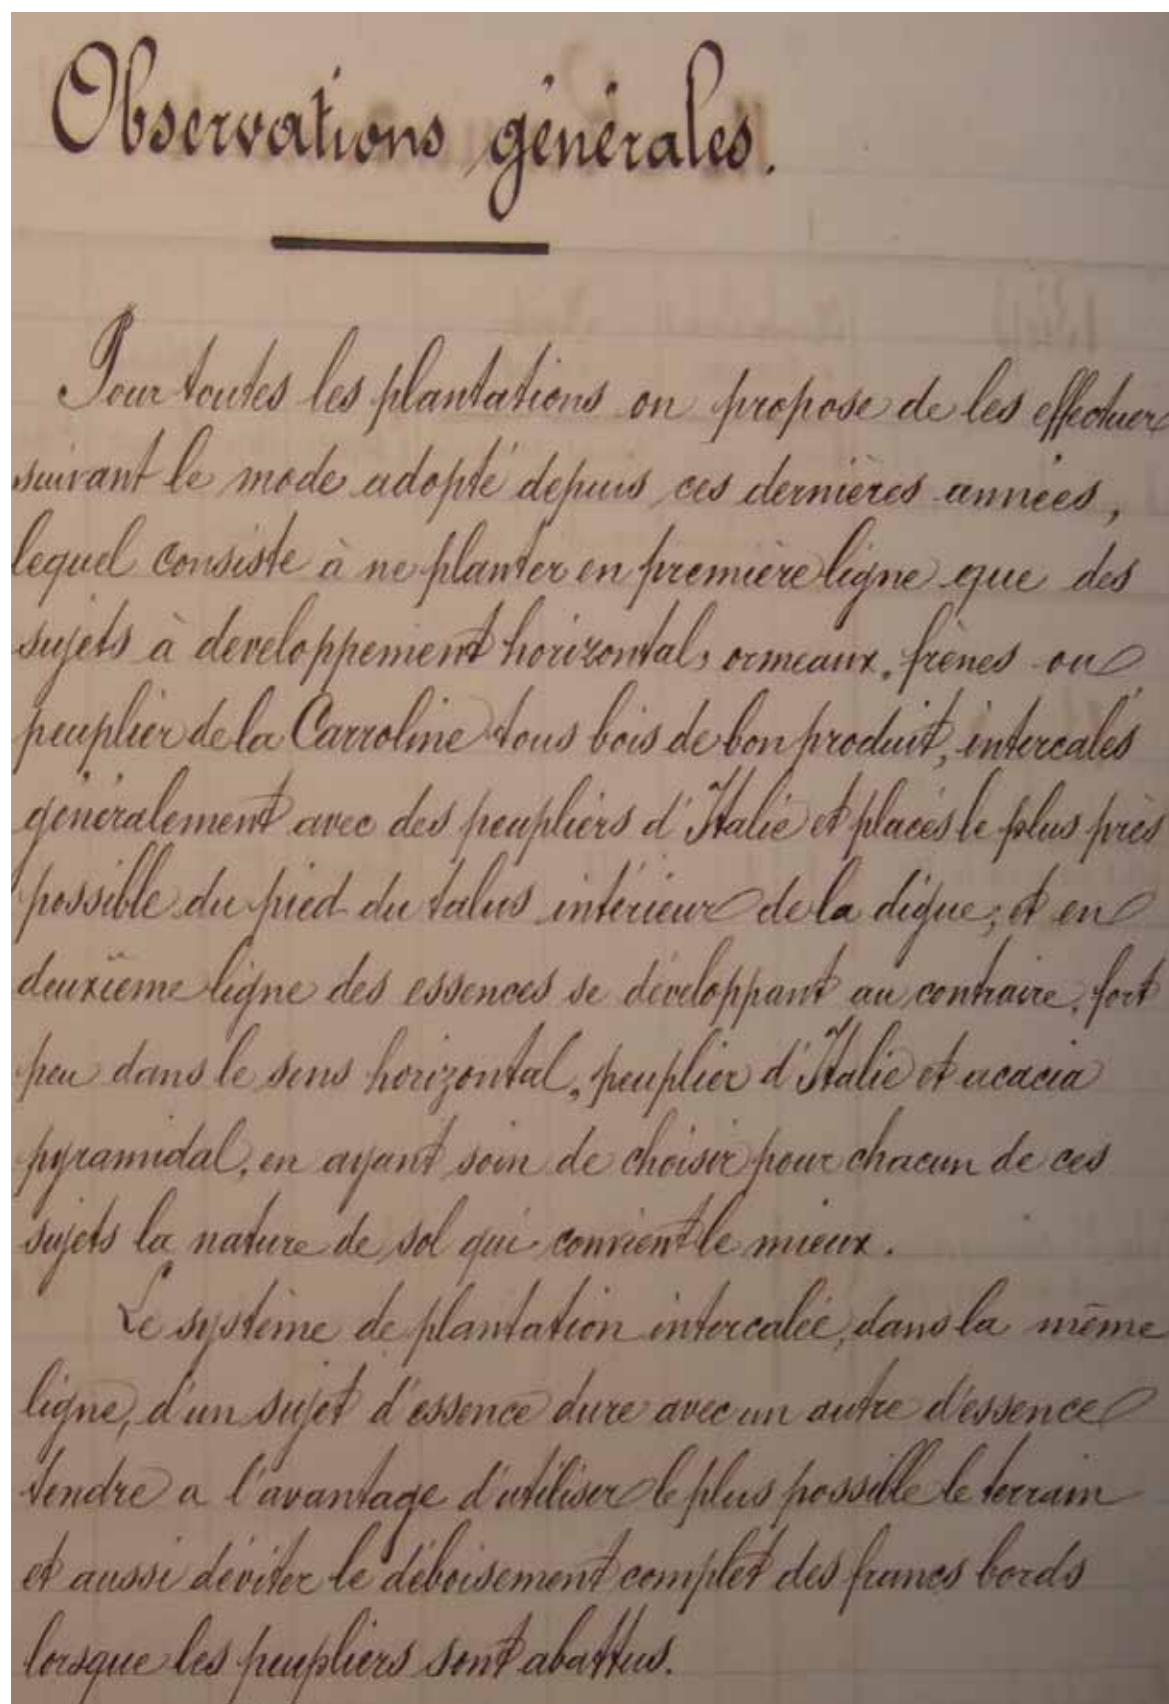 Observations générales.
Pour toutes les plantations on propose de les effectuer
suivant le mode adopté depuis ces dernières années,
lequel consiste à ne planter en première ligne que des
sujets à développement horizontal, ormeaux, frênes ou
peuplier de la Carroline tous bois de bon produit, intercalés
généralement avec des peupliers d'Italie et placés le plus près
possible du pied du talus intérieur de la digue; et en
deuxième ligne des essences se développant au contraire, fort
peu dans le sens horizontal, peuplier d'Italie et acacia
pyramidal, en ayant soin de choisir pour chacun de ces
sujets la nature de sol qui convient le mieux.
Le système de plantation intercalée, dans la même
ligne, d'un sujet d'essence dure avec un autre d'essence
tendre a l'avantage d'utiliser le plus possible le terrain
et aussi d'éviter le déboisement complet des francs bords
lorsque les peupliers sont abattus.